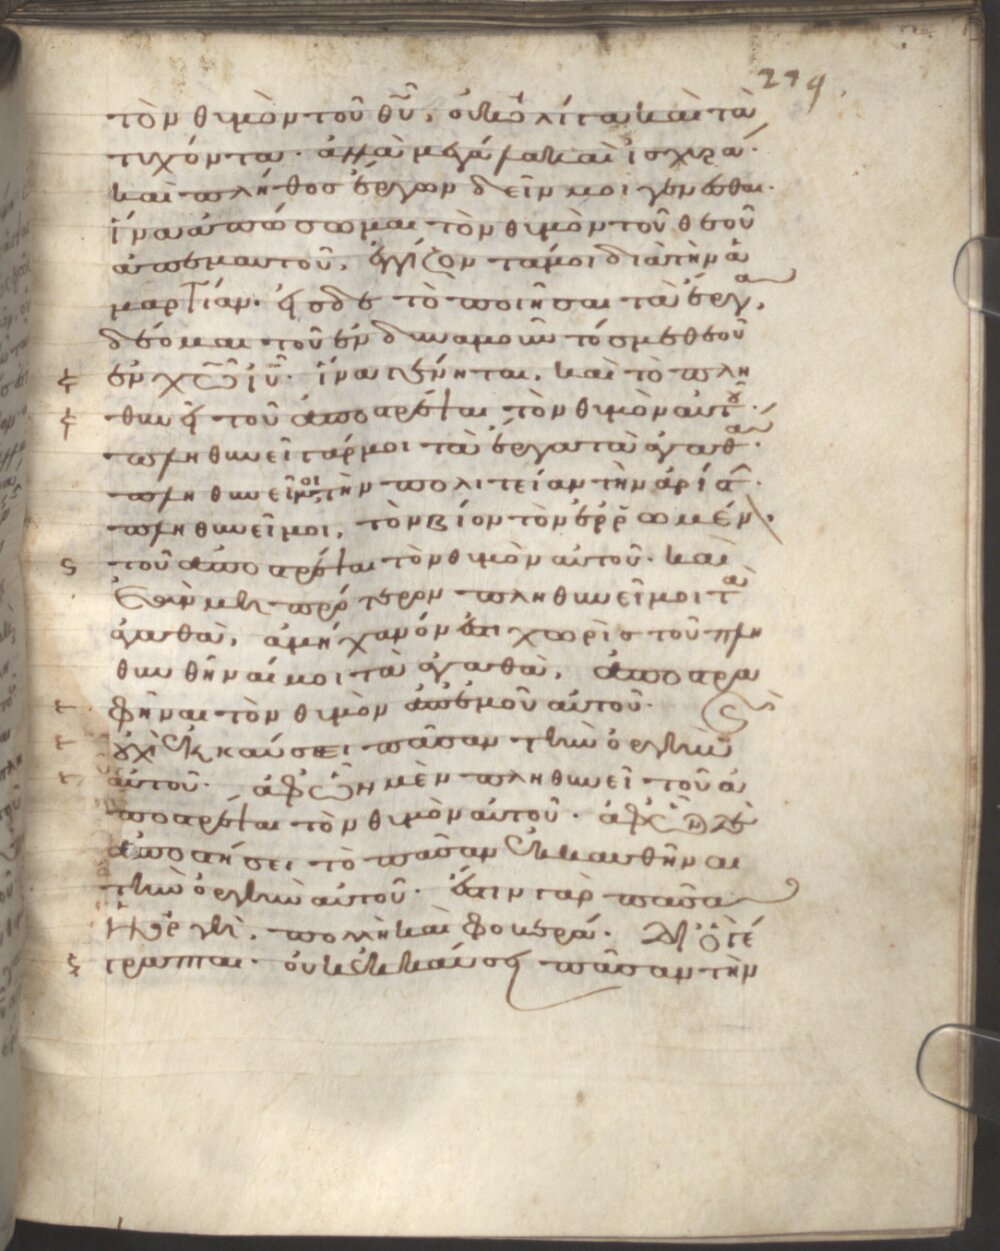 219
τὸν θυμὸν τοῦ θῦ, οὐκ ὀλίγα καὶ τὰ
τυχόντα· ἀλλὰ μεγάλα καὶ ἰσχυρά·
καὶ πλῆθος ἔργων δεῖν μοι γενέσθαι·
ἵνα ἀπώσωμαι τὸν θυμὸν τοῦ θεοῦ
ἀπ' ἐμαυτοῦ, ἐγγίζον τά μοι διὰ τὴν ἁ
μαρτίαν· ἐσο δὲ τὸ ποιῆσαι τὰ ἔργα,
δέομαι τοῦ ἐνδυναμοῦντός με θεοῦ
ἐν χῶ ἰῦ· ἵνα γένηται, καὶ τὸ πλη
θυ τοῦ ἀποστρέψαι τὸν θυμὸν αὐτοῦ·
πληθυνεῖ γάρ μοι τὰ ἔργα τὰ ἀγαθά·
πληθυνεῖ μοι τὴν πολιτείαν τὴν
πληθυνεῖ μοι, τὸν βίον τὸν ἐρρωμέν
τοῦ ἀποστρέψαι τὸν θυμὸν αὐτοῦ· καὶ
ἐὰν μὴ πρότερον πληθυνεῖ μοι τὰ
ἀγαθά, ἀμήχανόν ἐστι χωρὶς τοῦ πλη
θυνθῆναί μοι τὰ ἀγαθά, ἀποστρα
φῆναι τὸν θυμὸν ἀπ' ἐμοῦ αὐτοῦ·
οὐχὶ ἐκκαύσει πᾶσαν τὴν ὀργὴν
αὐτοῦ· μὲν πληθυνεῖ τοῦ ἀ
ποστρέψαι τὸν θυμὸν αὐτοῦ· δὲ
τὸ πᾶσαν ἐκκαυθῆναι
τὴν ὀργὴν αὐτοῦ· ἔστιν γὰρ πᾶσα
ἡ ὀργὴ, πολλὴ καὶ φοβερά· διὸ γέ
γραπται· οὐκ ἐκκαύσει πᾶσαν τὴν